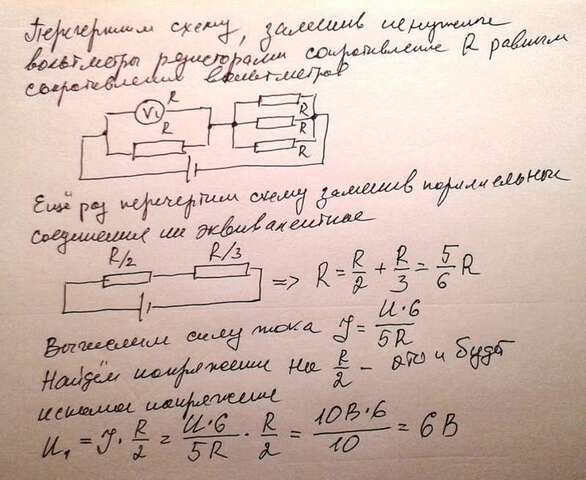 Перечертим схему, заменив ненужные
вольтметры резисторами сопротивление R равным
сопротивлению вольтметров
R
V₁
R
R
R
R
Ещё раз перечертим схему заменив параллельные
соединения на эквивалентное
R/2 R/3
=> R = R/2 + R/3 = 5/6 R
Вычислим силу тока J = U·6/5R
Найдём напряжение на R/2 – это и будет
искомое напряжение
U₁ = J · R/2 = U·6/5R · R/2 = 10В·6/10 = 6В